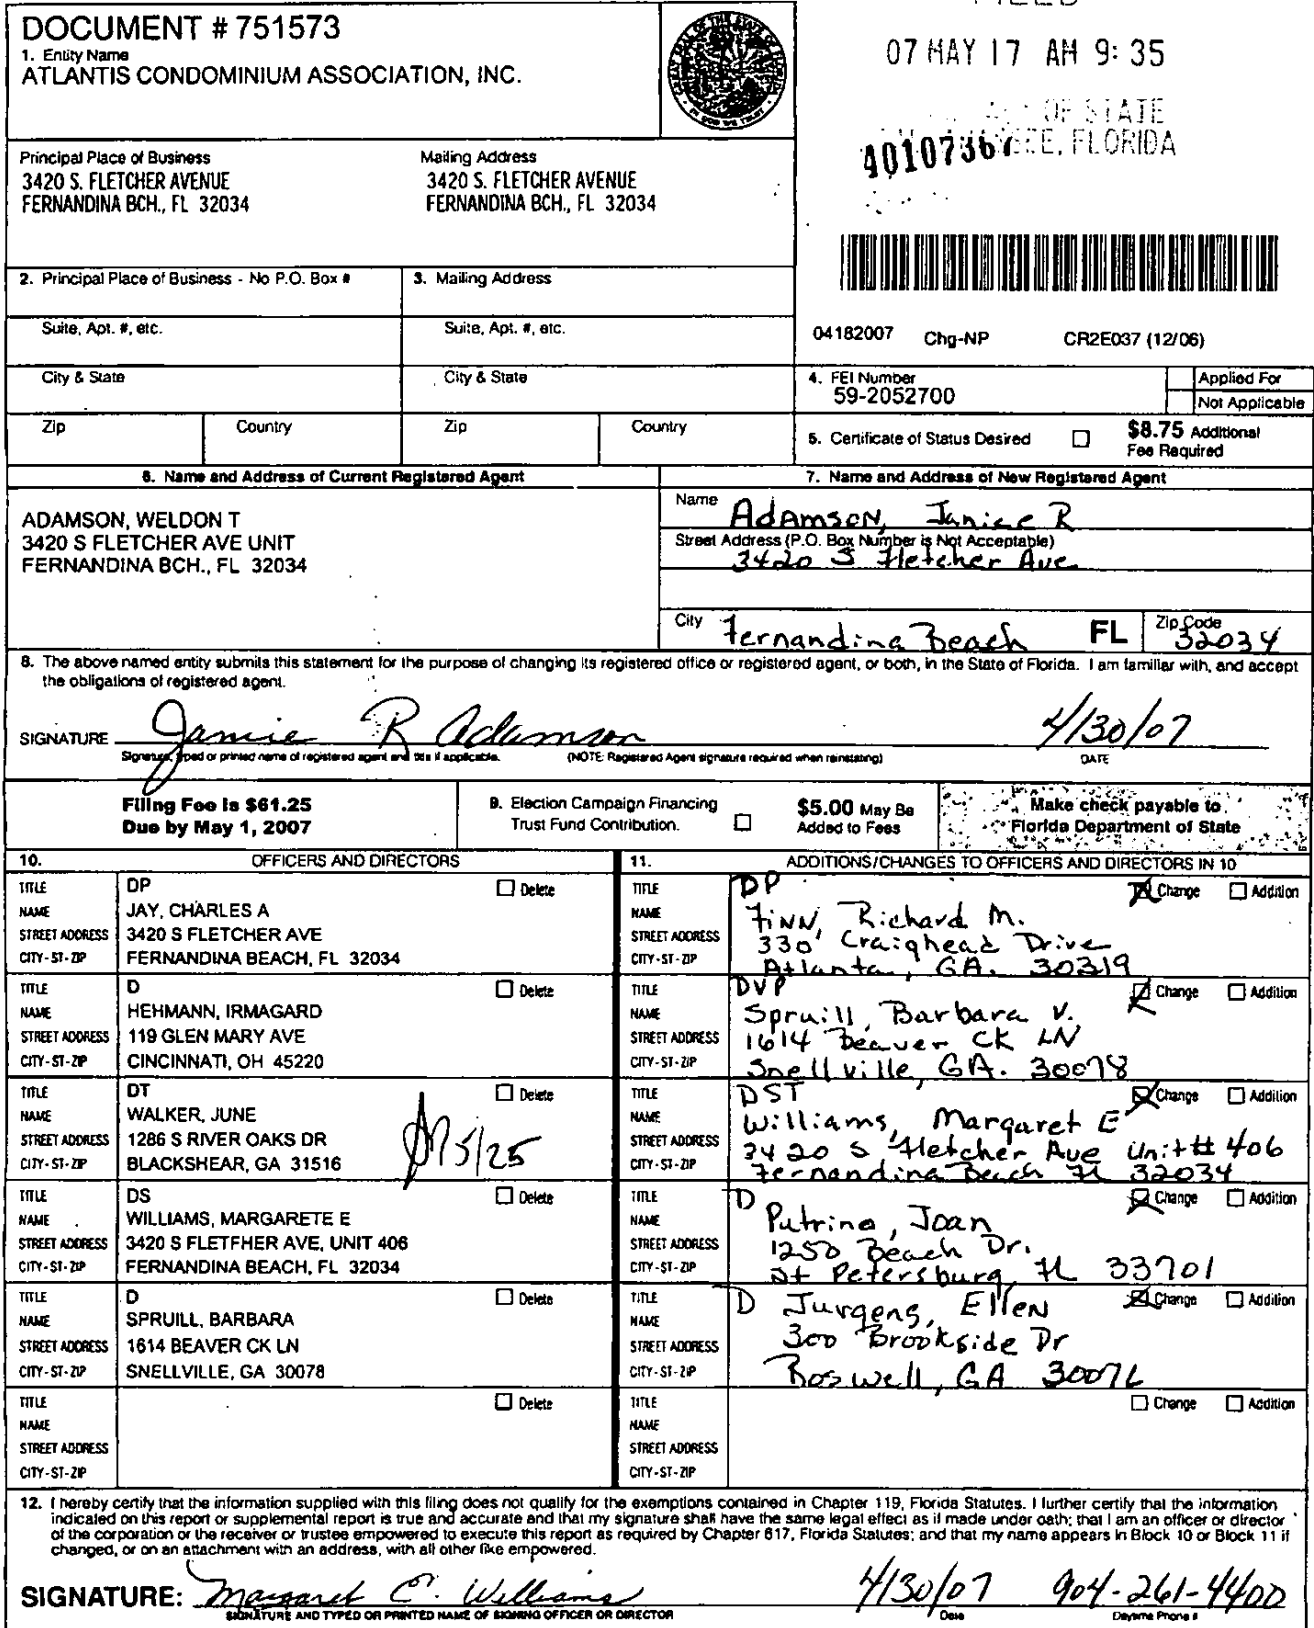 DOCUMENT # 751573
1. Entity Name
ATLANTIS CONDOMINIUM ASSOCIATION, INC.
07 MAY 17 AM 9:35
OF STATE
FLORIDA
40107367
Principal Place of Business
3420 S. FLETCHER AVENUE
FERNANDINA BCH., FL 32034
Mailing Address
3420 S. FLETCHER AVENUE
FERNANDINA BCH., FL 32034
2. Principal Place of Business - No P.O. Box #
3. Mailing Address
Suite, Apt. #, etc.
Suite, Apt. #, etc.
04182007 Chg-NP CR2E037 (12/06)
City & State
City & State
4. FEI Number
59-2052700
Applied For
Not Applicable
Zip Country
Zip Country
5. Certificate of Status Desired
$8.75 Additional
Fee Required
6. Name and Address of Current Registered Agent
ADAMSON, WELDON T
3420 S FLETCHER AVE UNIT
FERNANDINA BCH., FL 32034
7. Name and Address of New Registered Agent
Name Adamson, Janice R
Street Address (P.O. Box Number is Not Acceptable)
3420 S Fletcher Ave
City Fernandina Beach FL Zip Code 32034
8. The above named entity submits this statement for the purpose of changing its registered office or registered agent, or both, in the State of Florida. I am familiar with, and accept
the obligations of registered agent.
SIGNATURE Janice R Adamson 4/30/07
Signature, typed or printed name of registered agent and title if applicable. (NOTE: Registered Agent signature required when reinstating) DATE
Filing Fee is $61.25
Due by May 1, 2007
9. Election Campaign Financing
Trust Fund Contribution.
$5.00 May Be
Added to Fees
Make check payable to
Florida Department of State
10. OFFICERS AND DIRECTORS
TITLE DP Delete
NAME JAY, CHARLES A
STREET ADDRESS 3420 S FLETCHER AVE
CITY-ST-ZIP FERNANDINA BEACH, FL 32034
TITLE D Delete
NAME HEHMANN, IRMAGARD
STREET ADDRESS 119 GLEN MARY AVE
CITY-ST-ZIP CINCINNATI, OH 45220
TITLE DT Delete
NAME WALKER, JUNE
STREET ADDRESS 1286 S RIVER OAKS DR
CITY-ST-ZIP BLACKSHEAR, GA 31516
5/25
TITLE DS Delete
NAME WILLIAMS, MARGARETE E
STREET ADDRESS 3420 S FLETFHER AVE, UNIT 406
CITY-ST-ZIP FERNANDINA BEACH, FL 32034
TITLE D Delete
NAME SPRUILL, BARBARA
STREET ADDRESS 1614 BEAVER CK LN
CITY-ST-ZIP SNELLVILLE, GA 30078
TITLE Delete
NAME
STREET ADDRESS
CITY-ST-ZIP
11. ADDITIONS/CHANGES TO OFFICERS AND DIRECTORS IN 10
TITLE DP Change Addition
NAME Finn, Richard M.
STREET ADDRESS 330 Craighead Drive
CITY-ST-ZIP Atlanta, GA. 30319
TITLE DVP Change Addition
NAME Spruill, Barbara V.
STREET ADDRESS 1614 Beaver CK LN
CITY-ST-ZIP Snellville, GA. 30078
TITLE DST Change Addition
NAME Williams, Margaret E
STREET ADDRESS 3420 S Fletcher Ave Unit# 406
CITY-ST-ZIP Fernandina Beach Fl 32034
TITLE D Change Addition
NAME Putrino, Joan
STREET ADDRESS 1250 Beach Dr.
CITY-ST-ZIP St Petersburg, FL 33701
TITLE D Change Addition
NAME Jurgens, Ellen
STREET ADDRESS 300 Brookside Dr
CITY-ST-ZIP Roswell, GA 30076
TITLE Change Addition
NAME
STREET ADDRESS
CITY-ST-ZIP
12. I hereby certify that the information supplied with this filing does not qualify for the exemptions contained in Chapter 119, Florida Statutes. I further certify that the information
indicated on this report or supplemental report is true and accurate and that my signature shall have the same legal effect as if made under oath; that I am an officer or director
of the corporation or the receiver or trustee empowered to execute this report as required by Chapter 617, Florida Statutes; and that my name appears in Block 10 or Block 11 if
changed, or on an attachment with an address, with all other like empowered.
SIGNATURE: Margaret E. Williams 4/30/07 904-261-4400
SIGNATURE AND TYPED OR PRINTED NAME OF SIGNING OFFICER OR DIRECTOR Date Daytime Phone #